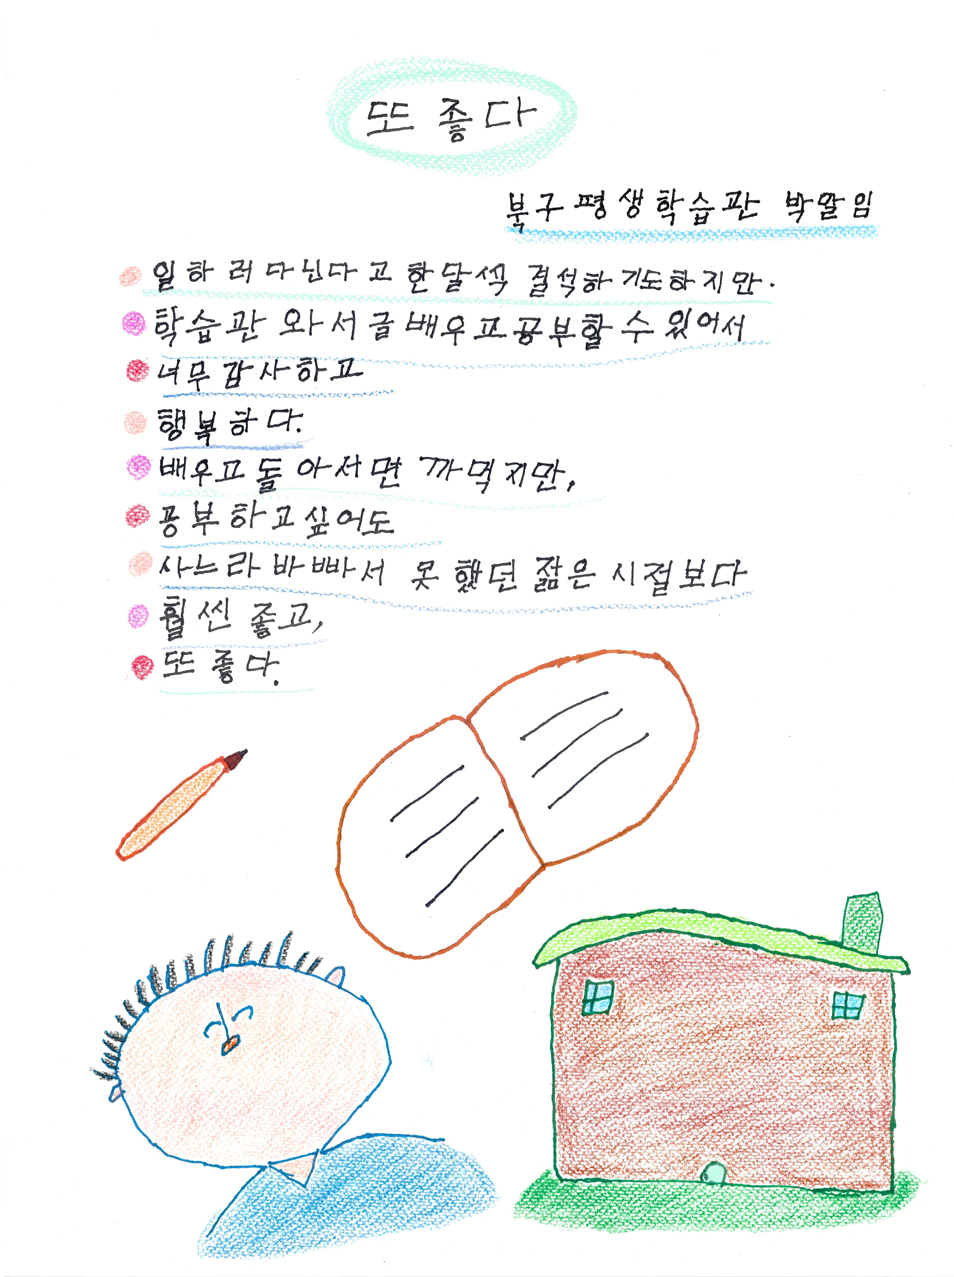 또 좋다
북구평생학습관 박말임
일하러다닌다고 한달섹 결석하기도하지만.
학습관 와서글배우고공부할 수 있어서
너무감사하고
행복하다.
배우고돌아서면 까먹지만,
공부하고싶어도
사느라바빠서 못했던 젊은 시절보다
훨씬 좋고,
또 좋다.